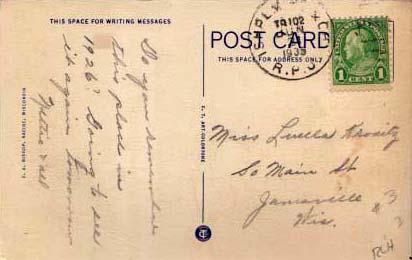 THIS SPACE FOR WRITING MESSAGES
Do you remember
this place in
1926? Going to see
it again tomorrow
Nettie & all
E. A. BISHOP, RACINE, WISCONSIN
C. T. ART-COLORTONE
POST CARD
THIS SPACE FOR ADDRESS ONLY
TR 102
JUN
1935
R.P.O.
1 CENT 1
Miss Luella
So Main St
Janesville
Wis.
#3
RLH